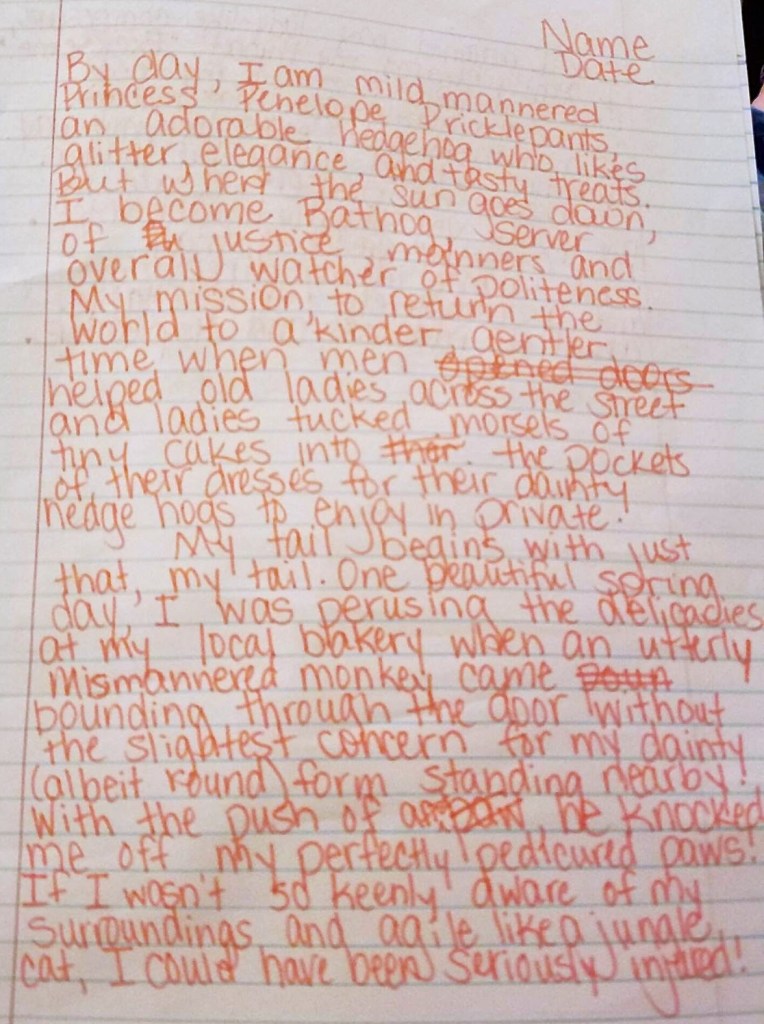 Name
Date
By day, I am mild mannered
Princess Penelope Pricklepants,
an adorable hedgehog who likes
glitter, elegance, and tasty treats.
But when the sun goes down,
I become Bathog, server
of justice, manners and
overall watcher of politeness.
My mission, to return the
world to a kinder, gentler
time when men opened doors
helped old ladies across the street
and ladies tucked morsels of
tiny cakes into ther the pockets
of their dresses for their dainty
hedge hogs to enjoy in private!
My tail begins with just
that, my tail. One beautiful spring
day, I was perusing the deligadies
at my local bakery when an utterly
mismannered monkey came
bounding through the door without
the slightest concern for my dainty
(albeit round) form standing nearby!
With the push of a paw he knocked
me off my perfectly pedicured paws!
If I wasn't so keenly aware of my
surroundings and agile like a jungle
cat, I could have been seriously injured!